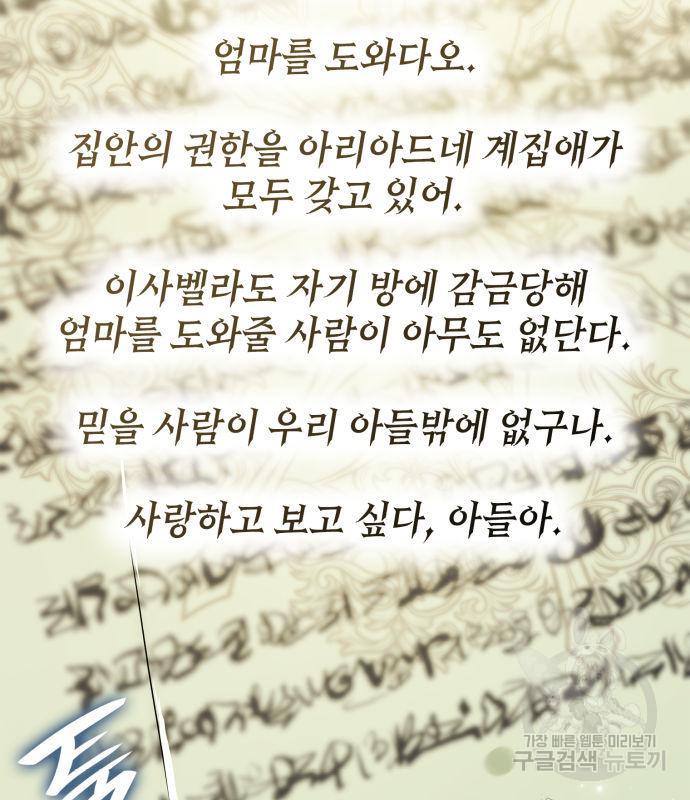 엄마를 도와다오.
집안의 권한을 아리아드네 계집애가
모두 갖고 있어.
이사벨라도 자기 방에 감금당해
엄마를 도와줄 사람이 아무도 없단다.
믿을 사람이 우리 아들밖에 없구나.
사랑하고 보고 싶다, 아들아.
가장 빠른 웹툰 미리보기
구글검색 뉴토끼